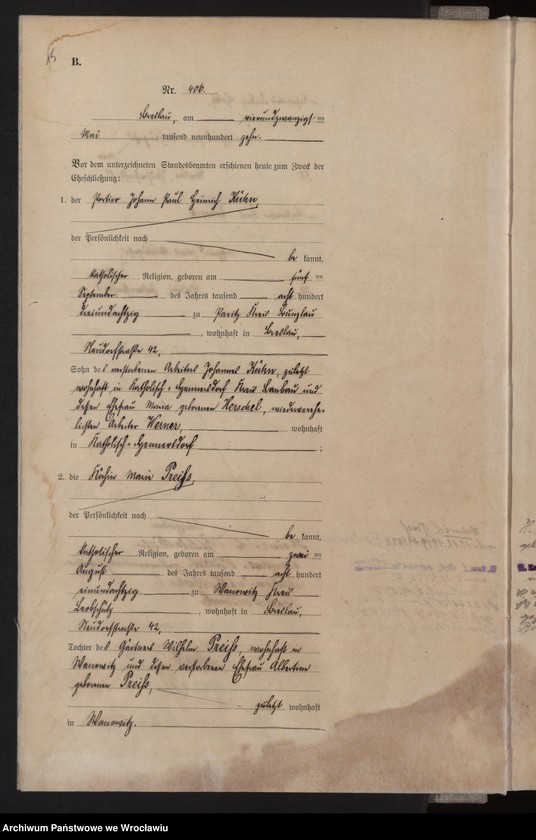 B.
Nr. 406.
Breslau, am vierundzwanzigsten
Mai tausend neunhundert zehn.
Vor dem unterzeichneten Standesbeamten erschienen heute zum Zweck der
Eheschließung:
1. der Portier Johann Paul Heinrich Kühn,
der Persönlichkeit nach
be kannt,
katholischer Religion, geboren am fünften
September des Jahres tausend acht hundert
dreiundachtzig zu Paritz Kreis Bunzlau
, wohnhaft in Breslau,
Neudorfstraße 42,
Sohn des verstorbenen Arbeiters Johannes Kühn, zuletzt
wohnhaft in Katholisch-Hennersdorf Kreis Lauban und
dessen Ehefrau Maria geborenen Herschel, wiederverehe-
lichten Arbeiter Werner, wohnhaft
in Katholisch-Hennersdorf ;
2. die Köchin Maria Preiß,
der Persönlichkeit nach
be kannt,
katholischer Religion, geboren am zweiten
August des Jahres tausend acht hundert
einundachtzig zu Wanowitz Kreis
Leobschütz , wohnhaft in Breslau,
Neudorfstraße 42,
Tochter des Gärtners Wilhelm Preiß, wohnhaft in
Wanowitz und dessen verstorbenen Ehefrau Albertine
geborenen Preiß,
zuletzt wohnhaft
in Wanowitz.
Archiwum Państwowe we Wrocławiu